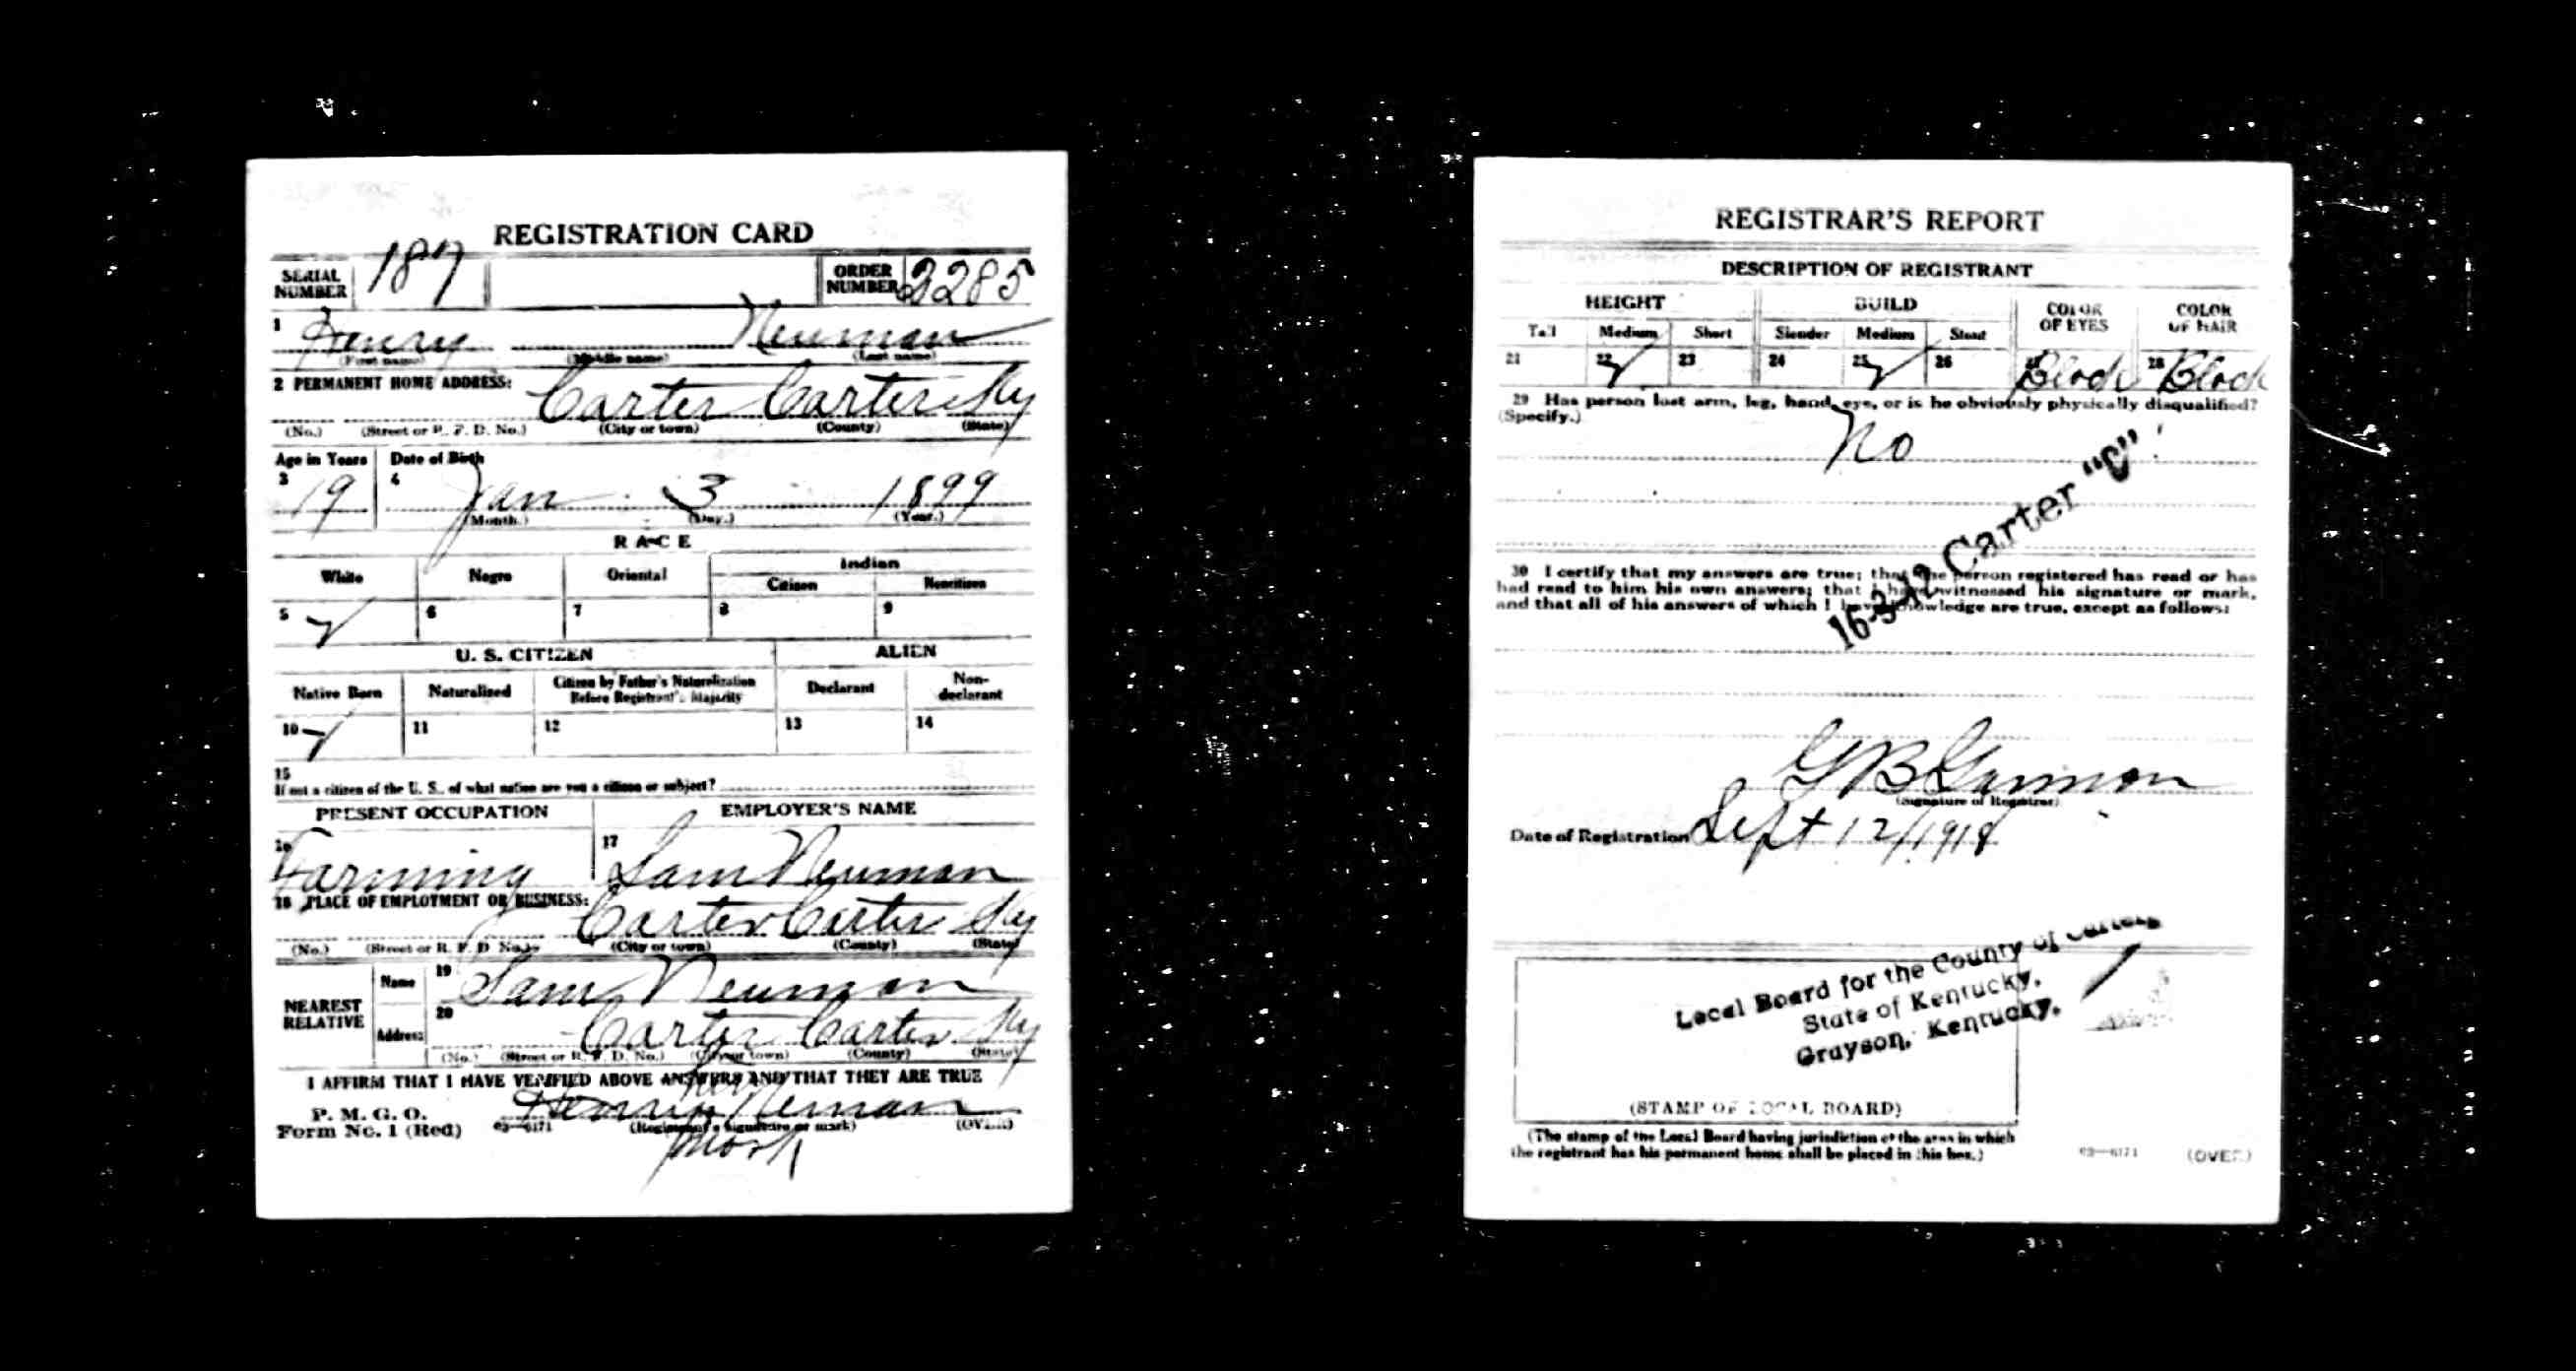 REGISTRATION CARD
SERIAL NUMBER 187 ORDER NUMBER 3285
1 Henry Neuman
(First name) (Middle name) (Last name)
2 PERMANENT HOME ADDRESS: Carter Carter Ky
(No.) (Street or R. F. D. No.) (City or town) (County) (State)
Age in Years Date of Birth
3 19 4 Jan 3 1899
(Month.) (Day.) (Year.)
RACE
White Negro Oriental Indian
Citizen Noncitizen
5 ✓ 6 7 8 9
U. S. CITIZEN ALIEN
Native Born Naturalized Citizen by Father's Naturalization Before Registrant's Majority Declarant Non-declarant
10 ✓ 11 12 13 14
15
If not a citizen of the U. S., of what nation are you a citizen or subject?
PRESENT OCCUPATION EMPLOYER'S NAME
16 Farming 17 Sam Neuman
18 PLACE OF EMPLOYMENT OR BUSINESS: Carter Carter Ky
(No.) (Street or R. F. D. No.) (City or town) (County) (State)
NEAREST RELATIVE Name 19 Sam Neuman
Address 20 Carter Carter Ky
(No.) (Street or R. F. D. No.) (City or town) (County) (State)
I AFFIRM THAT I HAVE VERIFIED ABOVE ANSWERS AND THAT THEY ARE TRUE
P. M. G. O.
Form No. 1 (Red) 03—6171 Henry Neman
(Registrant's signature or mark) (OVER)
mark
REGISTRAR'S REPORT
DESCRIPTION OF REGISTRANT
HEIGHT BUILD COLOR OF EYES COLOR OF HAIR
Tall Medium Short Slender Medium Stout
21 22 ✓ 23 24 25 ✓ 26 27 Black 28 Black
29 Has person lost arm, leg, hand, eye, or is he obviously physically disqualified?
(Specify.)
No
16-3-12 Carter "C"
30 I certify that my answers are true; that the person registered has read or has
had read to him his own answers; that I have witnessed his signature or mark,
and that all of his answers of which I have knowledge are true, except as follows:
(Signature of Registrar)
Date of Registration Sept 12/1918
Local Board for the County of Carter,
State of Kentucky,
Grayson, Kentucky.
(STAMP OF LOCAL BOARD)
(The stamp of the Local Board having jurisdiction of the area in which
the registrant has his permanent home shall be placed in this box.)
03—6171 (OVER)